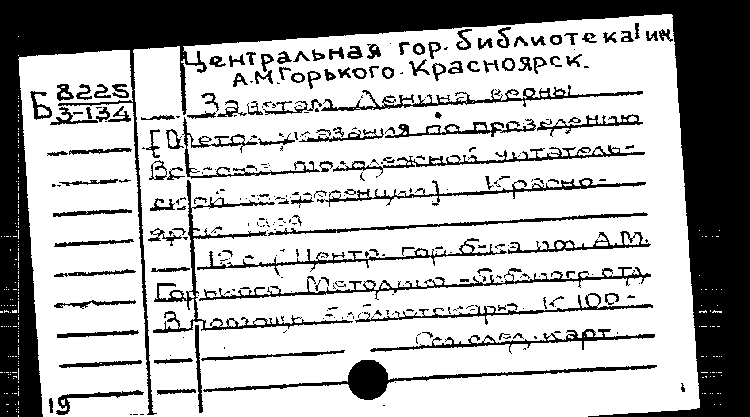 Центральная гор. библиотека им.
А.М.Горького. Красноярск.
Б 8225
3-134
Заветам Ленина верны
[Метод. указания по проведению
Всесоюз. молодежной читатель-
ской конференции]. Красно-
ярск, 1969
12 с. (Центр. гор. б-ка им. А.М.
Горького. Методико-библиогр. отд.
В помощь библиотекарю. К 100-
См. след. карт.
19